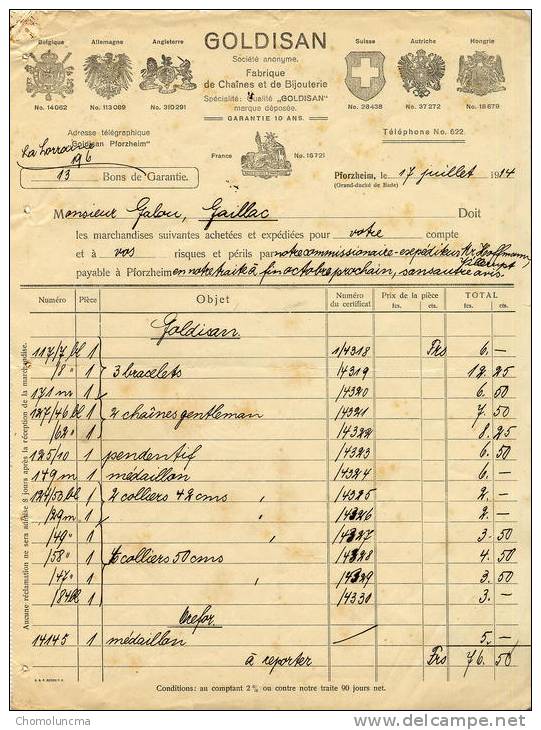 Belgique Allemagne Angleterre GOLDISAN Suisse Autriche Hongrie
Société anonyme.
Fabrique
de Chaînes et de Bijouterie
Spécialité: Qualité „GOLDISAN"
marque déposée.
GARANTIE 10 ANS.
No. 14062 No. 113089 No. 310291 No. 28438 No. 37272 No. 18679
Adresse télégraphique
„Goldisan Pforzheim"
Téléphone No. 622.
La Lorraine
196
France No. 16721
13 Bons de Garantie.
Pforzheim, le 17 juillet 1914
(Grand-duché de Bade)
Monsieur Galou, Gaillac Doit
les marchandises suivantes achetées et expédiées pour votre compte
et à vos risques et périls par notre commissionaire-expéditeur Mr. Hoffmann,
payable à Pforzheim en notre traite à fin octobre prochain, sans autre avis
Numéro Pièce Objet Numéro du certificat Prix de la pièce TOTAL
fcs. cts. fcs. cts.
Goldisan.
117/7 bl 1 1/4318 Frs 6. —
/8 " 1 3 bracelets /4319 12. 25
171 m 1 /4320 6. 50
127/46 bl 1 2 chaînes gentleman /4321 7. 50
/62 " 1 /4322 8. 25
125/10 1 pendentif /4323 6. 50
149 m 1 médaillon /4324 6. —
124/50 bl 1 2 colliers 42 cms /4325 2. —
/29 m 1 /4326 2. —
/49 " 1 /4327 3. 50
/58 " 1 colliers 50 cms /4328 4. 50
/47 " 1 /4329 3. 50
/84 bl 1 /4330 3. —
Orefor.
14145 1 médaillon / 5. —
à reporter Frs 76. 50
Aucune réclamation ne sera admise 8 jours après la réception de la marchandise.
Conditions: au comptant 2% ou contre notre traite 90 jours net.
Chomoluncma
delcampe.net